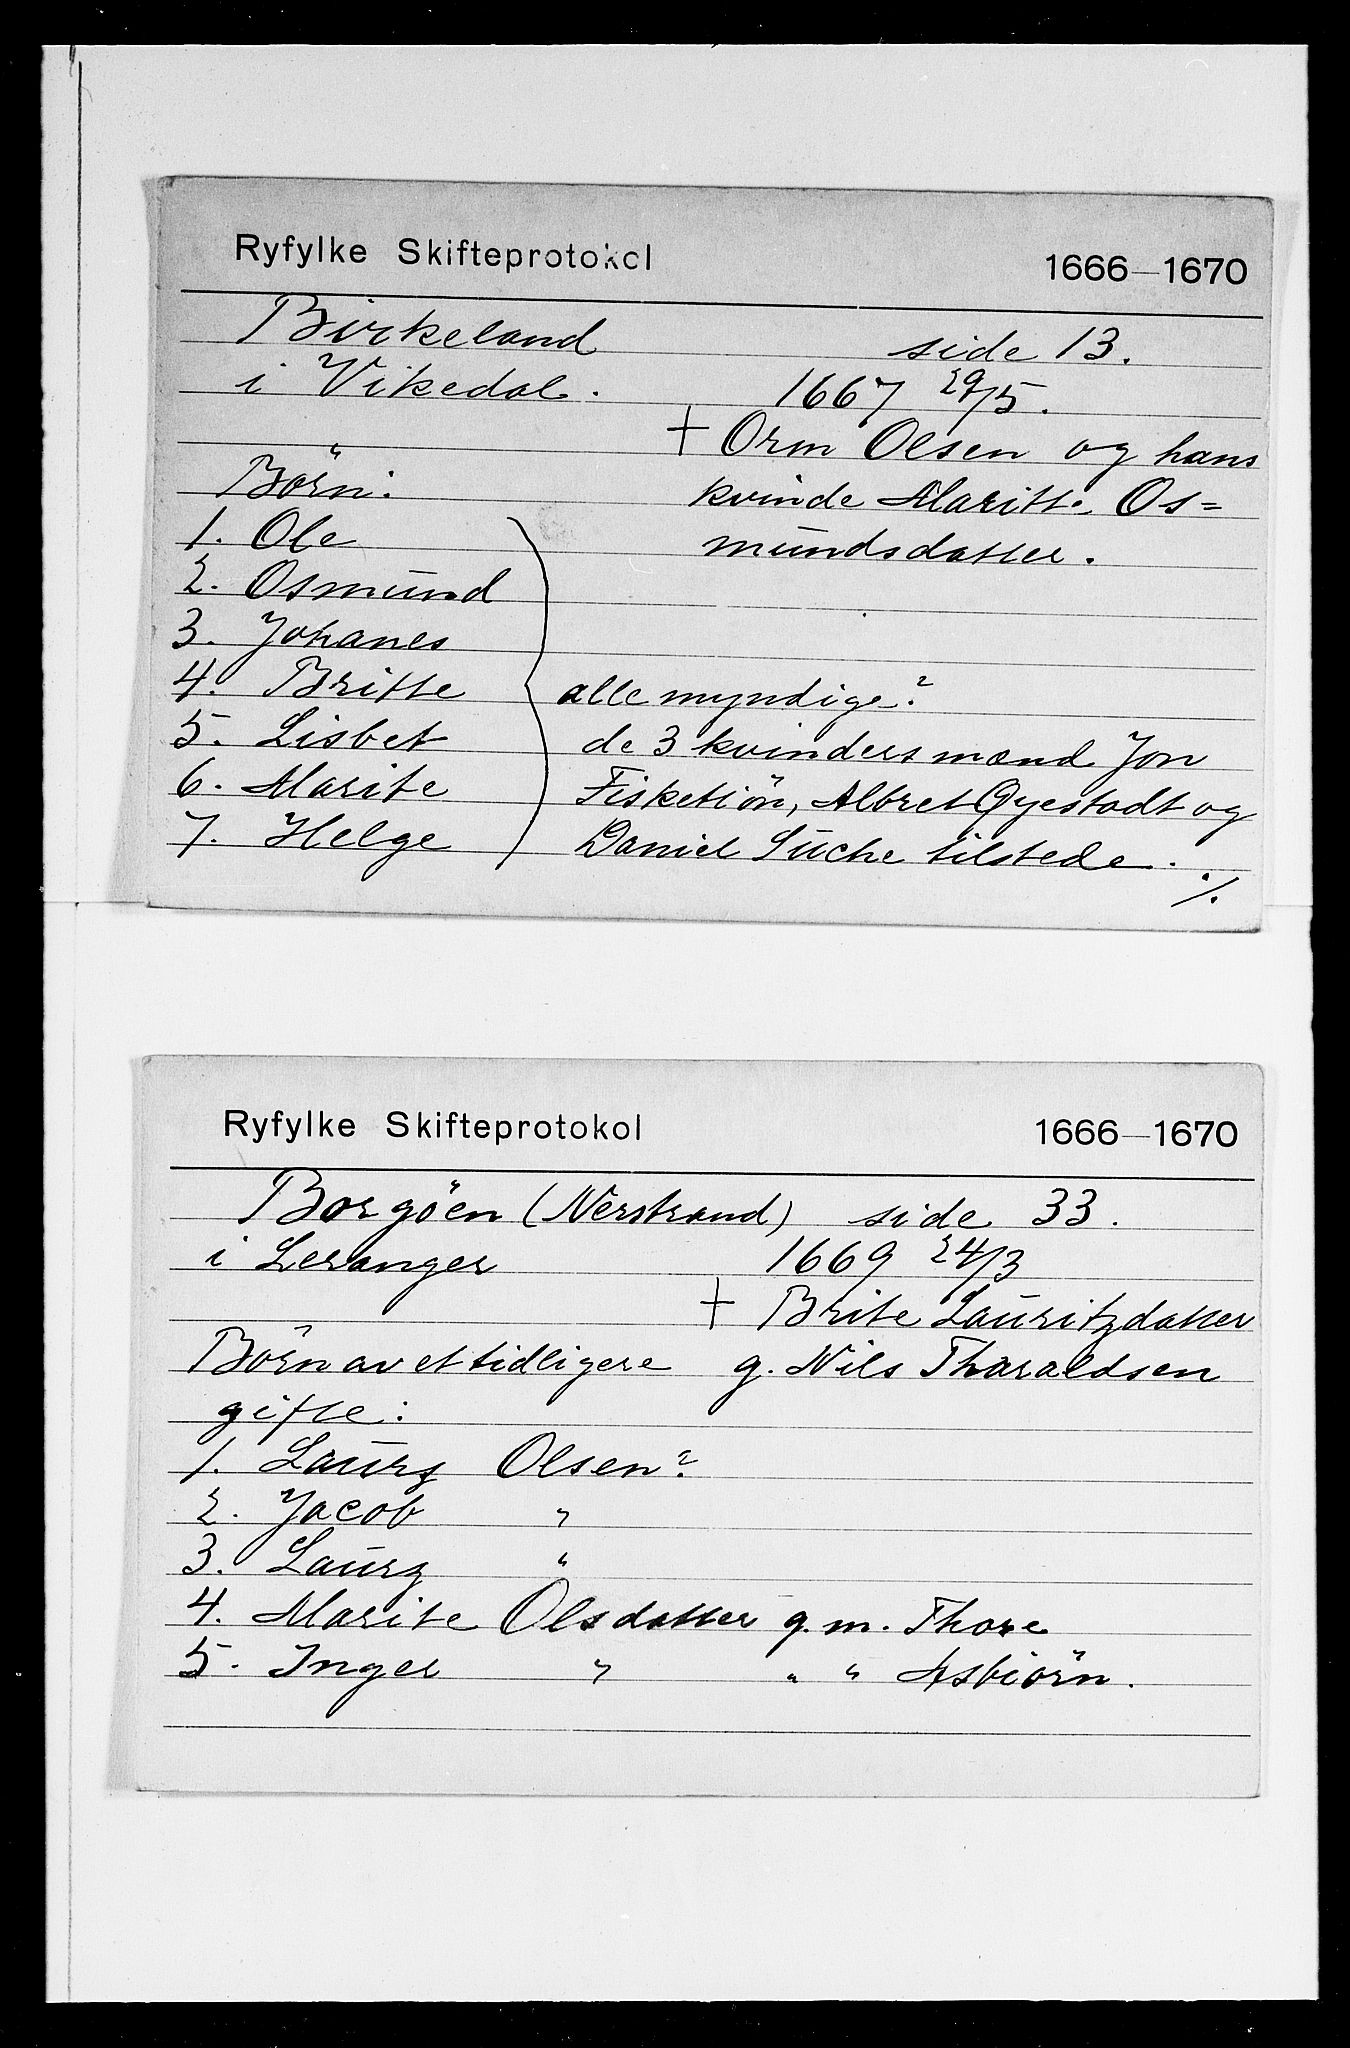 Ryfylke Skifteprotokol 1666–1670
Birkeland side 13.
i Vikedal. 1667 29/5.
† Orm Olsen og hans
Börn: kvinde Maritte Os=
1. Ole mundsdatter.
2. Osmund
3. Johanes
4. Britte alle myndige?
5. Lisbet de 3 kvinders mænd Jon
6. Marite Fisketiön, Albret Qyestadt og
7. Helge Daniel Suche tilstede. ./.
Ryfylke Skifteprotokol 1666–1670
Borgöen (Nerstrand) side 33.
i Leranger 1669 24/3
† Brite Lauritzdatter
Börn av et tidligere g. Nils Tharaldsen
gifte:
1. Laurs Olsen?
2. Jacob "
3. Laurs "
4. Marite Olsdatter g. m. Thore
5. Inger " " " Asbiörn.